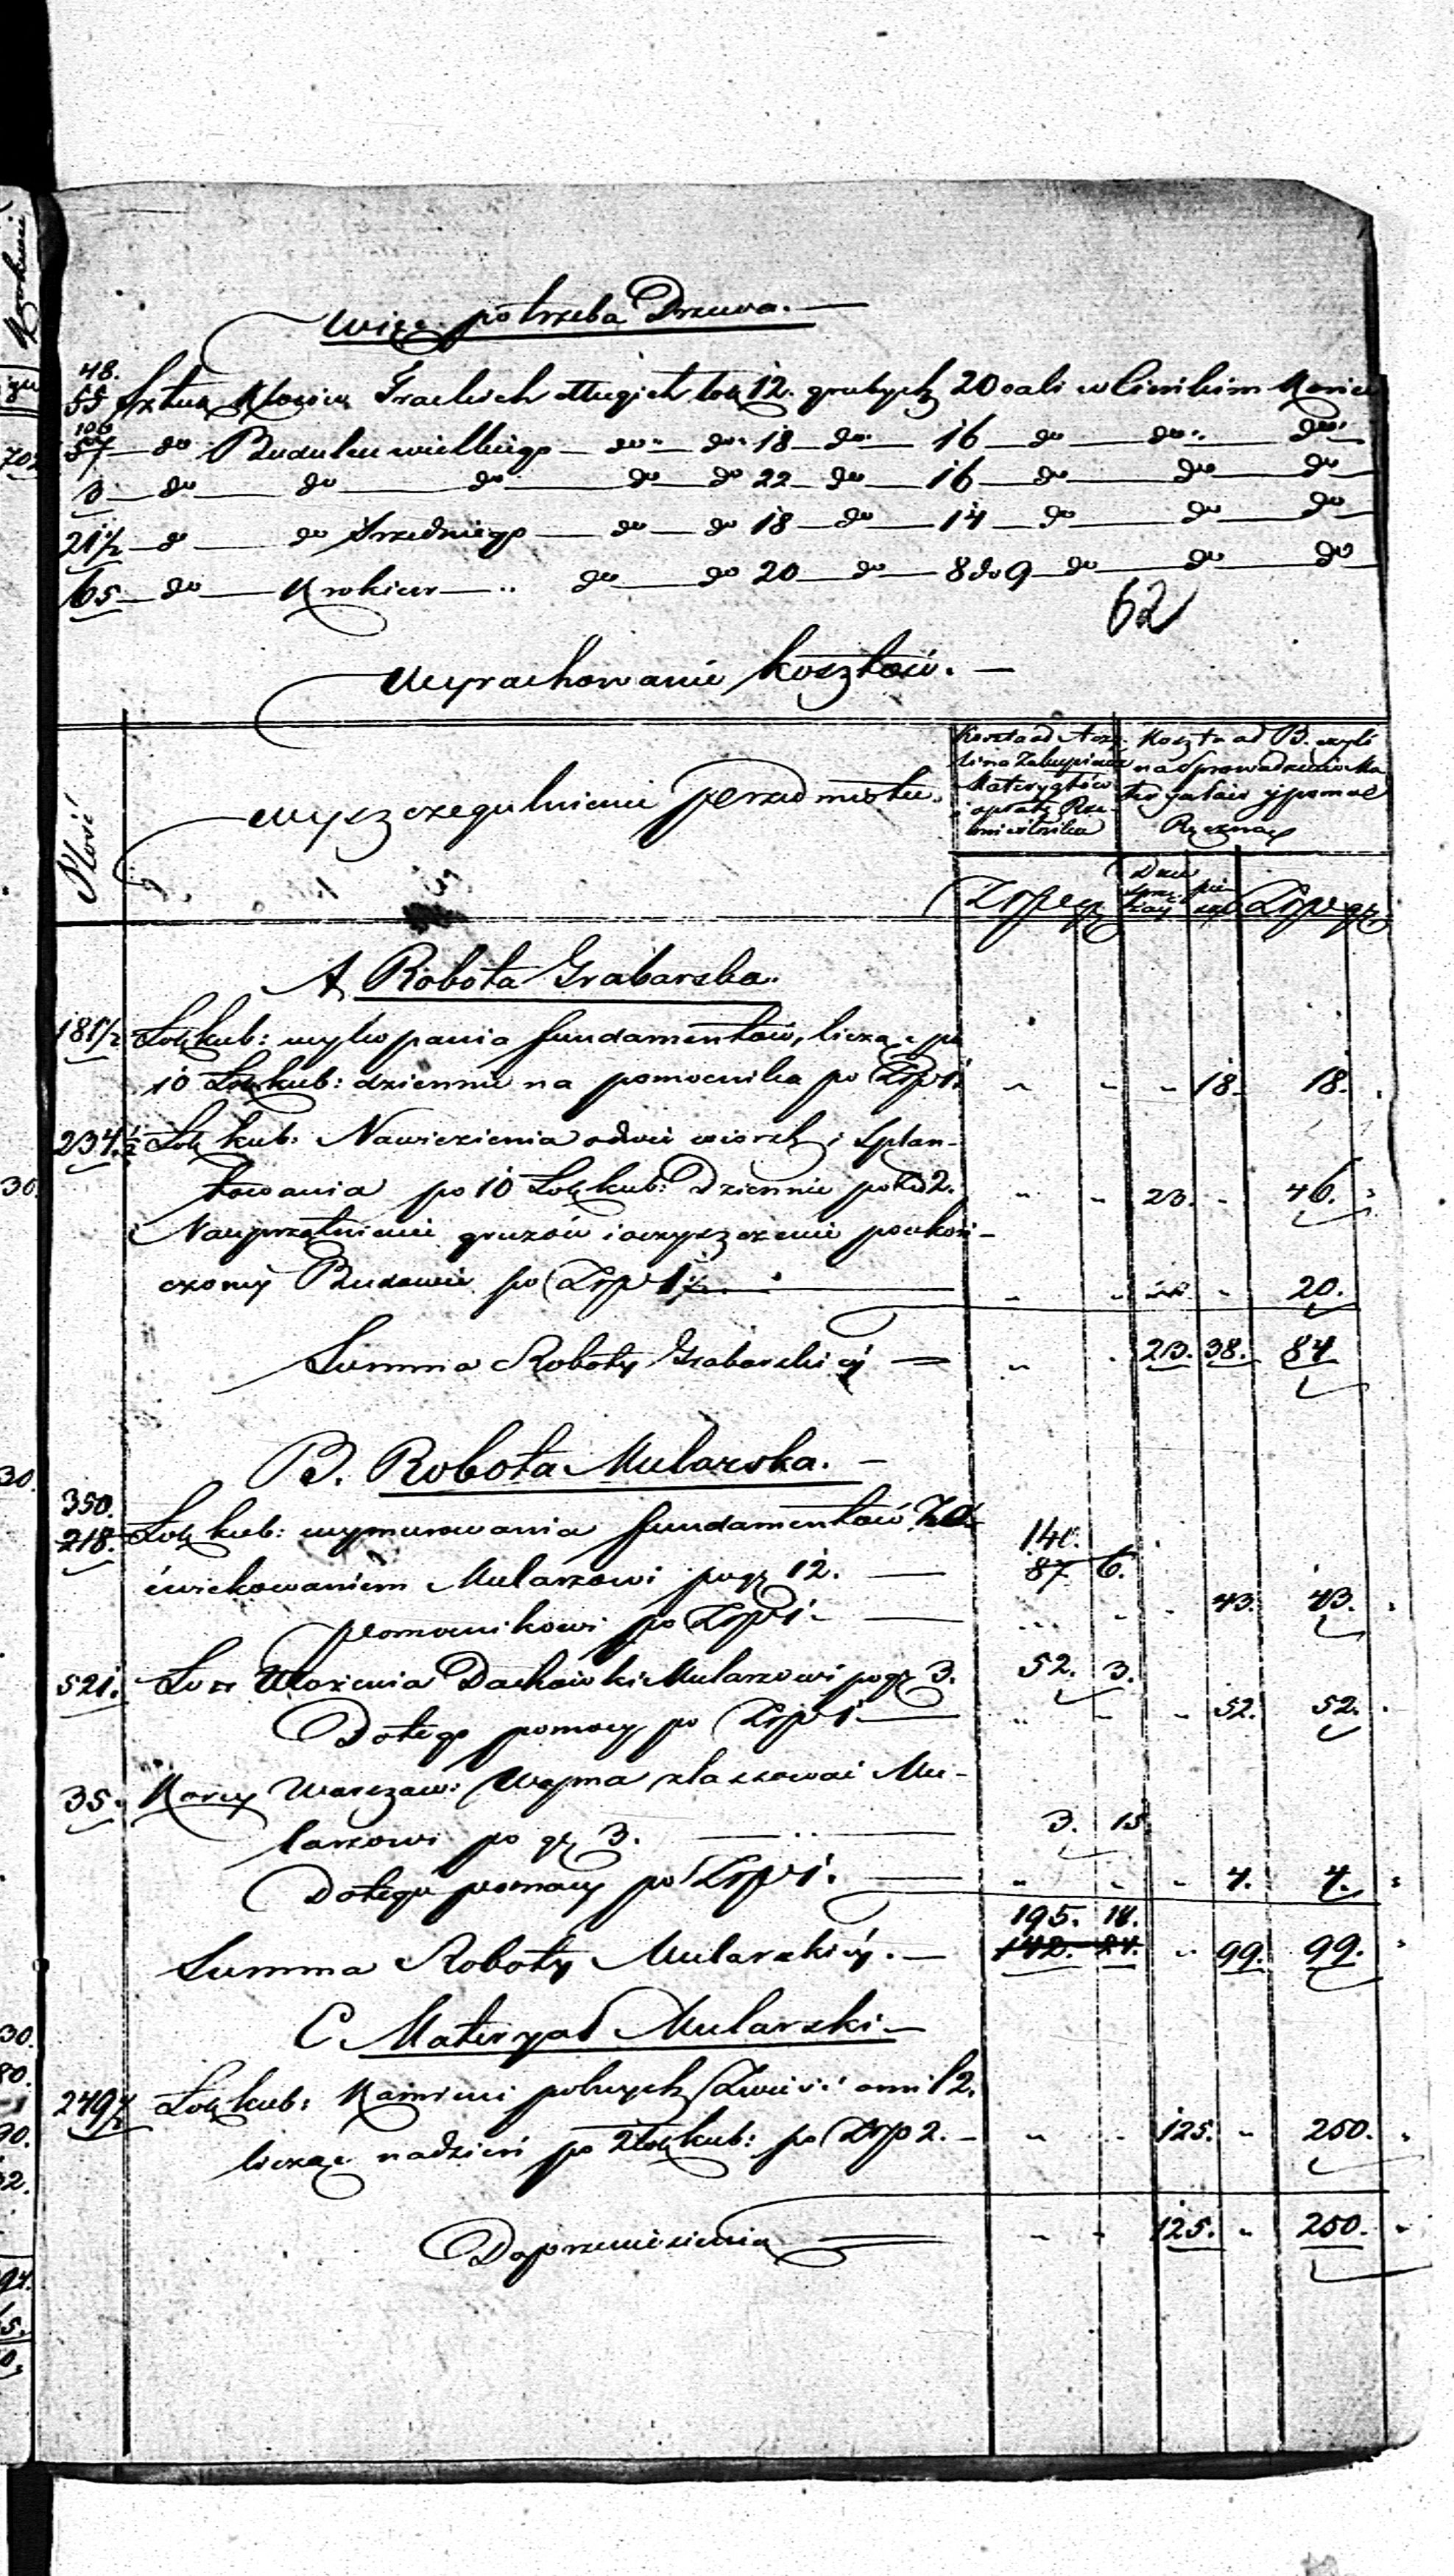 Więc potrzeba Drzewa. —
48.
55 Sztuk Kloców Trackich długich łok 12. grubych 20 cali w Cienkim Końcu
100
57 — do Budulcu wielkiego — do — do 18 — do — 16 — do — do — do
3 — do — do — do — do — do 22 — do — 16 — do — do — do
21 1/2 — do — do Średniego — do — do 18 — do — 14 — do — do — do
65 — do — Krokiew — do — do 20 — do — 8 do 9 — do — do — do
62
Wyrachowanie kosztów. —
Ilość
wyszczegulnienie przedmiotu.
Koszta ad A czy
li na Zakupienie
Materyałów
i opłatę Rze-
mieślnika
Koszta ad B. czyli
na Sprowadzenie Ma
teryałów y pomoc
Ręczną
Złp gr
Dni
sprzę
żaj
pie
sze
Złp gr
A. Robota Grabarska.
181 1/2 Łok kub: wykopania fundamentów, licząc po
10 Łok kub: dziennie na pomocnika po Złp 1. „ „ „ 18. 18.
234 1/2 Łok kub: Nawiezienia i Splan-
towania po 10 Łok kub: Dziennie po Złp 2. „ „ 23. „ 46.
Na uprzątnienie gruzów i oczyszczenie po ukoń-
czony Budowie po Złp 1 „ „ „ 20.
Summa Roboty Grabarskiey „ 23. 38. 84
B. Robota Mularska. —
350.
218. Łok kub: wymurowania fundamentów Ze
140.
ćwiekowaniem Mularzowi po gr 12. — 87 6.
pomocnikowi po Złp 1 — „ „ 43. 43.
521. Łok Ułożenia Dachówki Mularzowi po gr 3. 52. 3.
Do tego pomocy po Złp 1 — „ „ „ 52. 52.
35. Korcy Warszaw: Wapna zlasować Mu-
larzowi po gr 3. — 3. 15
Do tego pomocy po Złp 1. — „ „ „ 4. 4.
195. 18.
Summa Roboty Mularskiey. — 142. 24. „ 99. 99.
C. Materyał Mularski —
249 1/2 Łok kub: Kamieni polnych Zwieść o mil 2.
licząc na dzień po 2 Łok kub: po Złp 2. — „ „ 125. „ 250.
Do przeniesienia „ „ 125. „ 250.